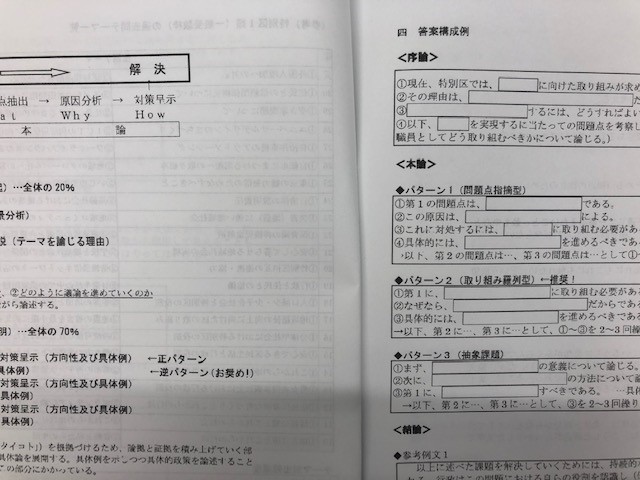 解決
点抽出 → 原因分析 → 対策呈示
at Why How
本 論
出)…全体の20%
景分析)
説(テーマを論じる理由)
、②どのように議論を進めていくのか
がら論述する。
明)…全体の70%
対策呈示(方向性及び具体例) ←正パターン
具体例) ←逆パターン(お奨め!)
対策呈示(方向性及び具体例)
具体例)
対策呈示(方向性及び具体例)
具体例)
タイコト」)を根拠づけるため、論拠と証拠を積み上げていく部
具体論を展開する。具体例を示しつつ具体的政策を論述すること
この部分にかかっている。
四 答案構成例
<序論>
①現在、特別区では、 に向けた取り組みが求め
②その理由は、 だ
③ するには、どうすればよい
④以下、 を実現するに当たっての問題点を考察し
職員としてどう取り組むべきかについて論じる。)
<本論>
◆パターン1(問題点指摘型)
①第1の問題点は、 である。
②この原因は、 による。
③これに対処するには、 に取り組む必要があ
④具体的には、 を進めるべきであ
→以下、第2の問題点は…、第3の問題点は…として①~
◆パターン2(取り組み羅列型)←推奨!
①第1に、 に取り組む必要があ
②なぜなら、 だからであ
③具体的には、 を進めるべきであ
→以下、第2に…、第3に…として、①~③を2~3回繰
◆パターン3(抽象課題)
①まず、 の意義について論じる。
②次に、 の方法について論
③第1に、 すべきである。 …具体
→以下、第2に…、第3に…として、③を2~3回繰
<結論>
◆参考例文1
以上に述べた課題を解決していくためには、持続的